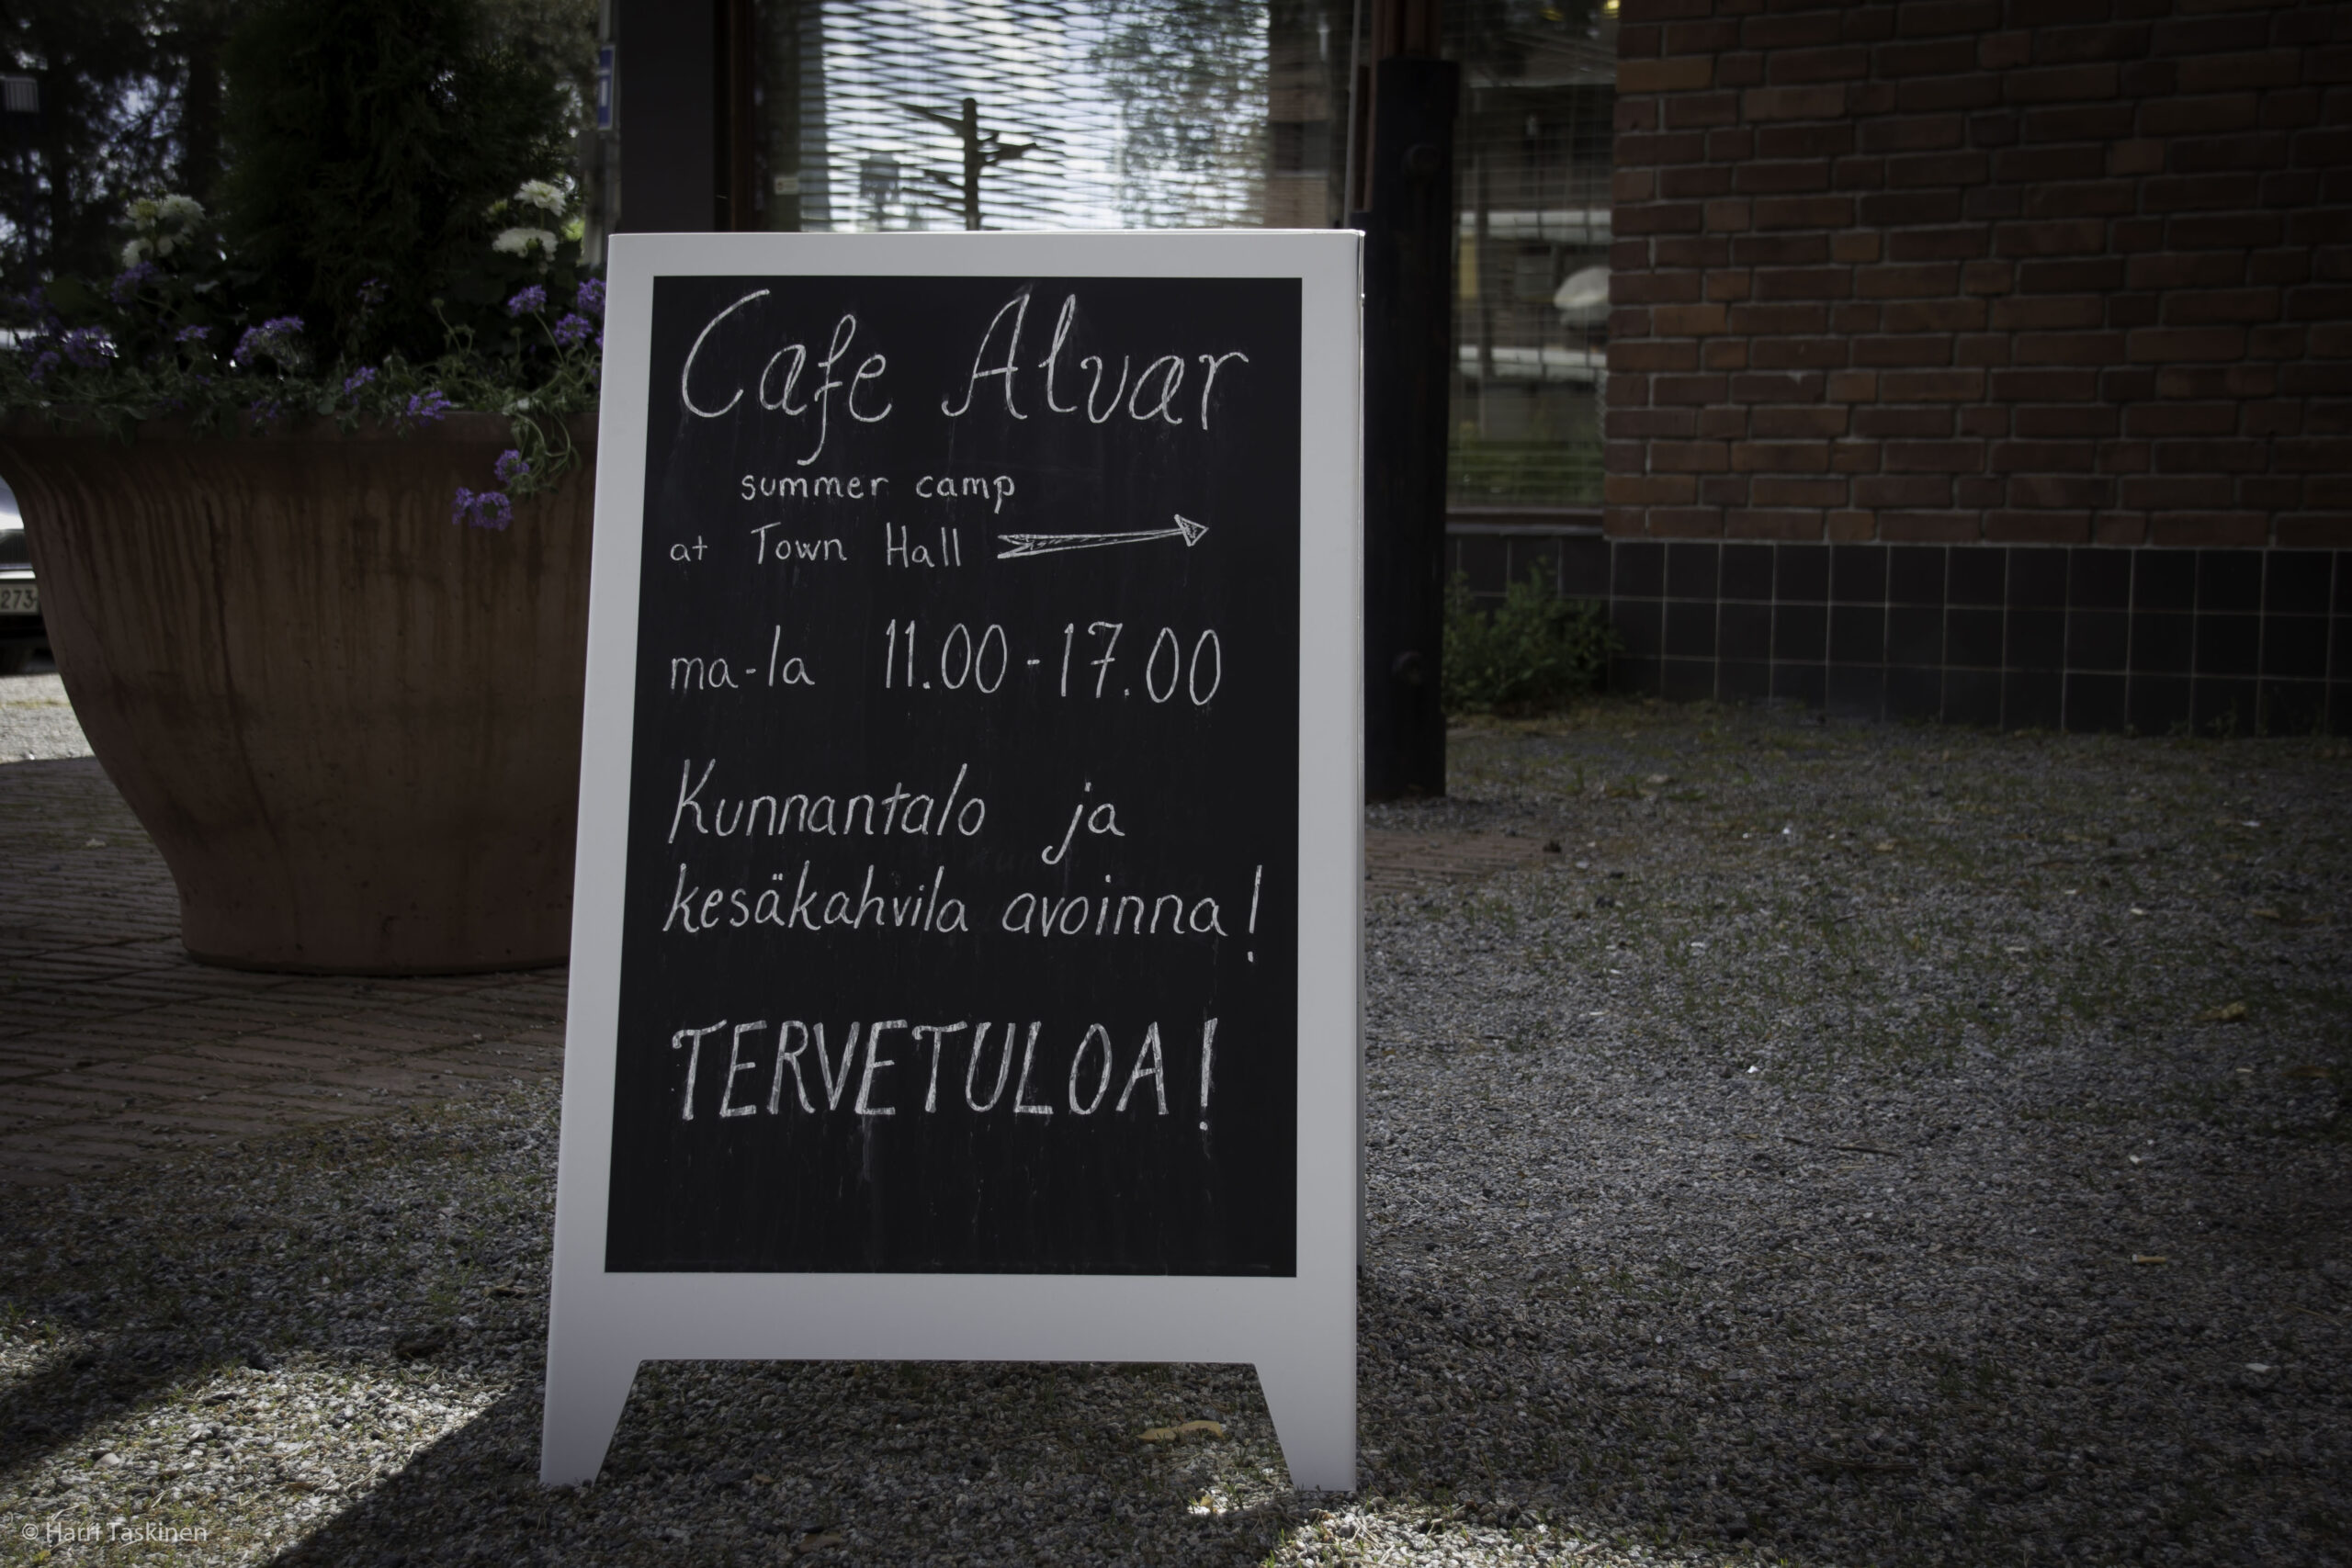 Cafe Alvar
summer camp
at Town Hall
ma-la 11.00-17.00
Kunnantalo ja
kesäkahvila avoinna!
TERVETULOA!
273
© Harri Taskinen